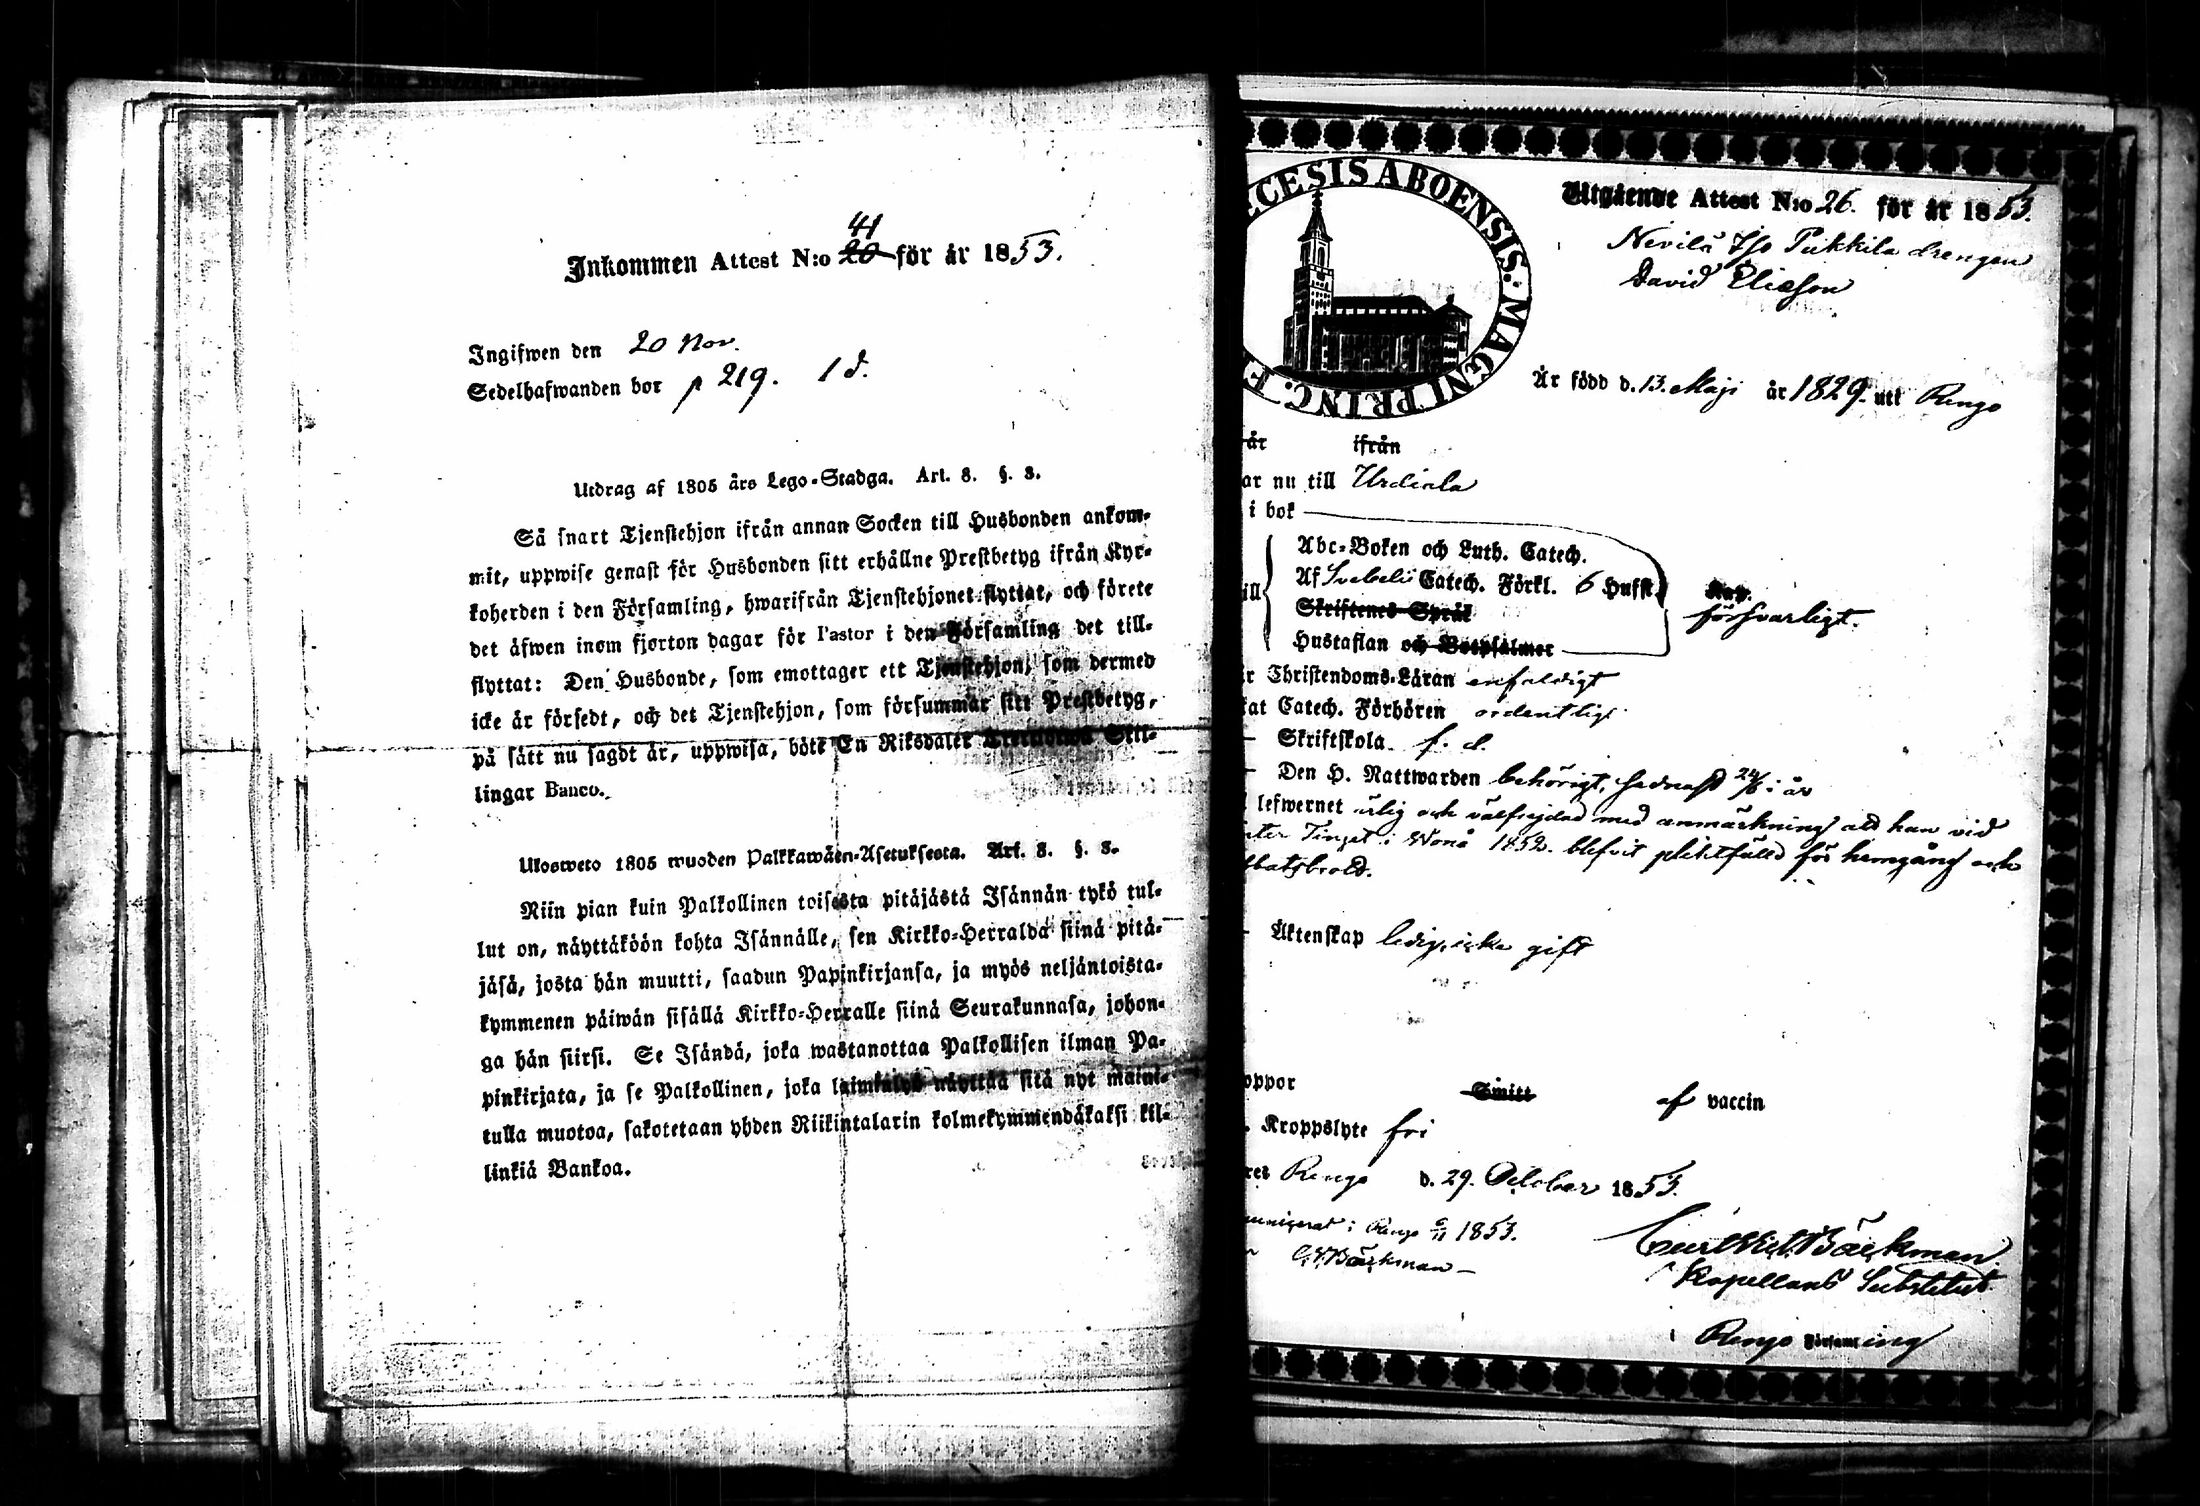 Inkommen Attest N:o 20 41 för år 1853.
Ingifwen den 20 Nov.
Sedelhafwanden bor p 219. 1 d.
Utdrag af 1805 års Lego-Stadga. Art. 8. §. 3.
Så snart Tjenstehjon ifrån annan Socken till Husbonden ankom-
mit, uppwise genast för Husbonden sitt erhållne Prestbetyg ifrån Kyr-
koherden i den Församling, hwarifrån Tjenstehjonet flyttat, och förete
det äfwen inom fjorton dagar för Pastor i den Församling det till-
flyttat: Den Husbonde, som emottager ett Tjenstehjon, som dermed
icke är försedt, och det Tjenstehjon, som försummar sitt Prestbetyg,
på sätt nu sagdt är, uppwisa, böte En Riksdaler Trettiotwå Skil-
lingar Banco.
Ulosweto 1805 wuoden Palkkawäen-Asetuksesta. Art. 8. §. 3.
Niin pian kuin Palkollinen toisesta pitäjästä Isännän tykö tul-
lut on, näyttäköön kohta Isännälle, sen Kirkko-Herralda siinä pitä-
jäsä, josta hän muutti, saadun Papinkirjansa, ja myös neljäntoista-
kymmenen päiwän sisällä Kirkko-Herralle siinä Seurakunnasa, johon-
ga hän siirsi. Se Isändä, joka wastanottaa Palkollisen ilman Pa-
pinkirjata, ja se Palkollinen, joka laiminlyö näyttää sitä nyt maini-
tulla muotoa, sakotetaan yhden Riikintalarin kolmekymmendäkaksi kil-
linkiä Bankoa.
ECESIS ABOENSIS: MAGNI PRINC. F
Utgående Attest N:o 26. för år 1853.
Nevilä Pukkila drengen
David Eliasson
Är född d. 13. Maji år 1829. uti Rengo
år ifrån
ar nu till Urdiala
i bok
Abc-Boken och Luth. Catech.
ill Af Svebelii Catech. Förkl. 6 Hufst.
Skriftenes Språk försvarligt.
Hustaflan och Botpsalmer
r Christendoms-Läran enfaldigt
kat Catech. Förhören ordentligt
Skriftskola f. d.
Den H. Nattwarden behörigt, sednast 24/6 i år
lefwernet ärlig och välfrejdad med anmärkning att han vid
nter Tinget i Wonå 1852. blifvit pliktfälld för hemgång och
batsbrott.
Äktenskap ledig, icke gift
oppor Smitt af vaccin
Kroppslyte fri
ret Rengo d. 29. October 1853.
municerat i Rengo 6/11 1853.
C.W.Bäckman
Curt Wilh. Bäckman
Kapellans Substitut.
i Rengo Församling